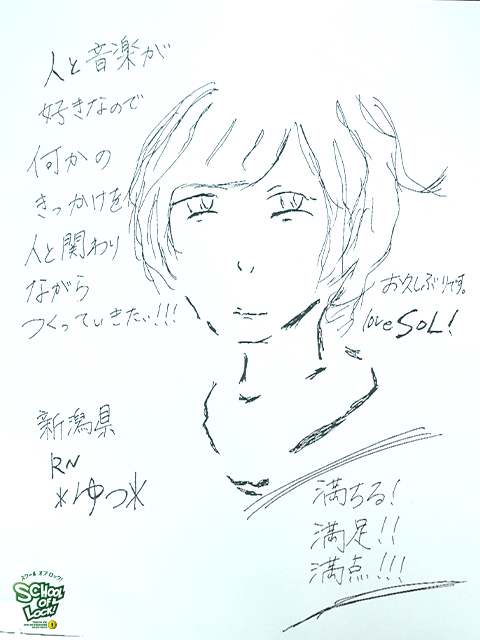 人と音楽が
好きなので
何かの
きっかけを
人と関わり
ながら
つくっていきたい!!!
お久しぶりです。
love SOL!
新潟県
RN
*ゆつ*
満ちる!
満足!!
満点!!!
スクール オブ ロック!
SCHOOL
OF
LOCK!